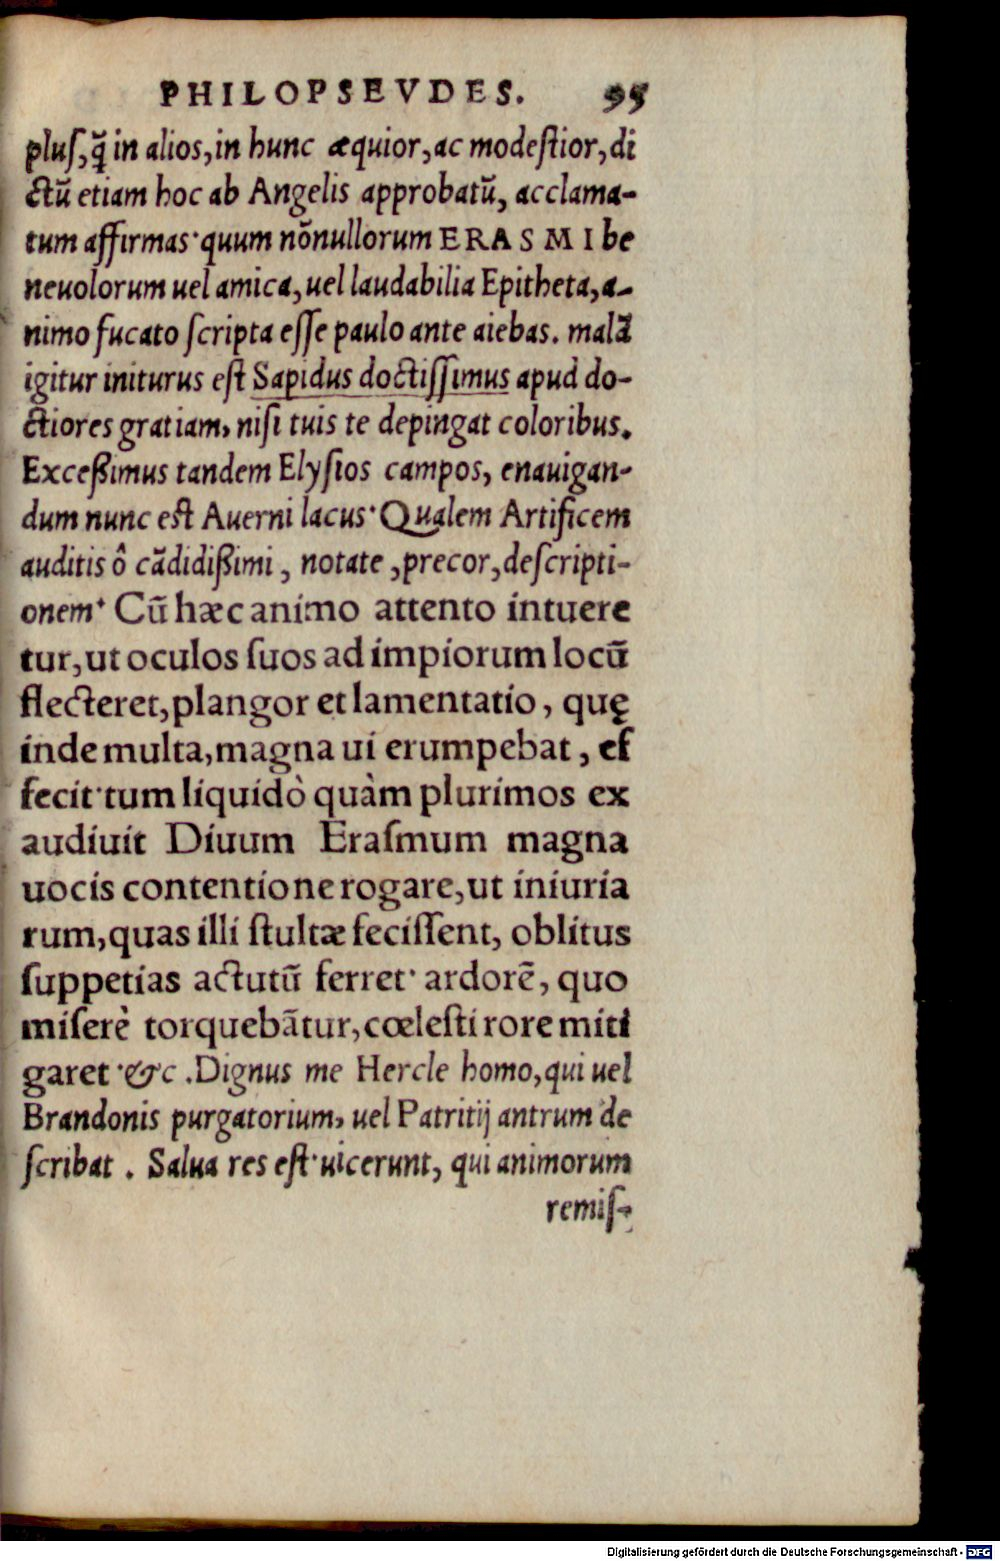 PHILOPSEVDES. 95
pluſ,q̃ in alios,in hunc æquior,ac modeſtior,di
ctũ etiam hoc ab Angelis approbatũ, acclama-
tum affirmas·quum nõnullorum ERASMI be
neuolorum uel amica,uel laudabilia Epitheta,a-
nimo fucato ſcripta eſſe paulo ante aiebas. malã
igitur initurus eſt Sapidus doctiſſimus apud do-
ctiores gratiam, niſi tuis te depingat coloribus.
Exceßimus tandem Elyſios campos, enauigan-
dum nunc est Auerni lacus·Qualem Artificem
auditis ô cãdidißimi , notate ,precor,deſcripti-
onem· Cũ hæc animo attento intuere
tur,ut oculos ſuos ad impiorum locũ
flecteret,plangor et lamentatio, quę
inde multa,magna ui erumpebat, eſ
fecit·tum liquidò quàm plurimos ex
audiuit Diuum Eraſmum magna
uocis contentione rogare,ut iniuria
rum,quas illi ſtultæ feciſſent, oblitus
ſuppetias actutũ ferret· ardorẽ, quo
miſerè torquebãtur,cœleſti rore miti
garet·&c .Dignus me Hercle homo,qui uel
Brandonis purgatorium, uel Patritij antrum de
ſcribat . Salua res eſt·uicerunt, qui animorum
remiſ-
Digitalisierung gefördert durch die Deutsche Forschungsgemeinschaft - DFG